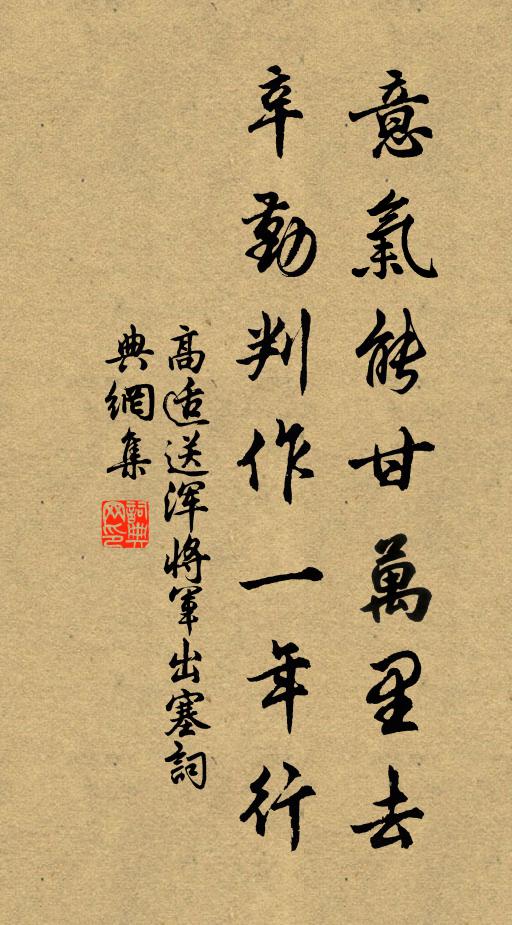 意氣能甘萬里去
辛勤判作一年行
高适送浑將軍出塞詞
典網集
詞典网印